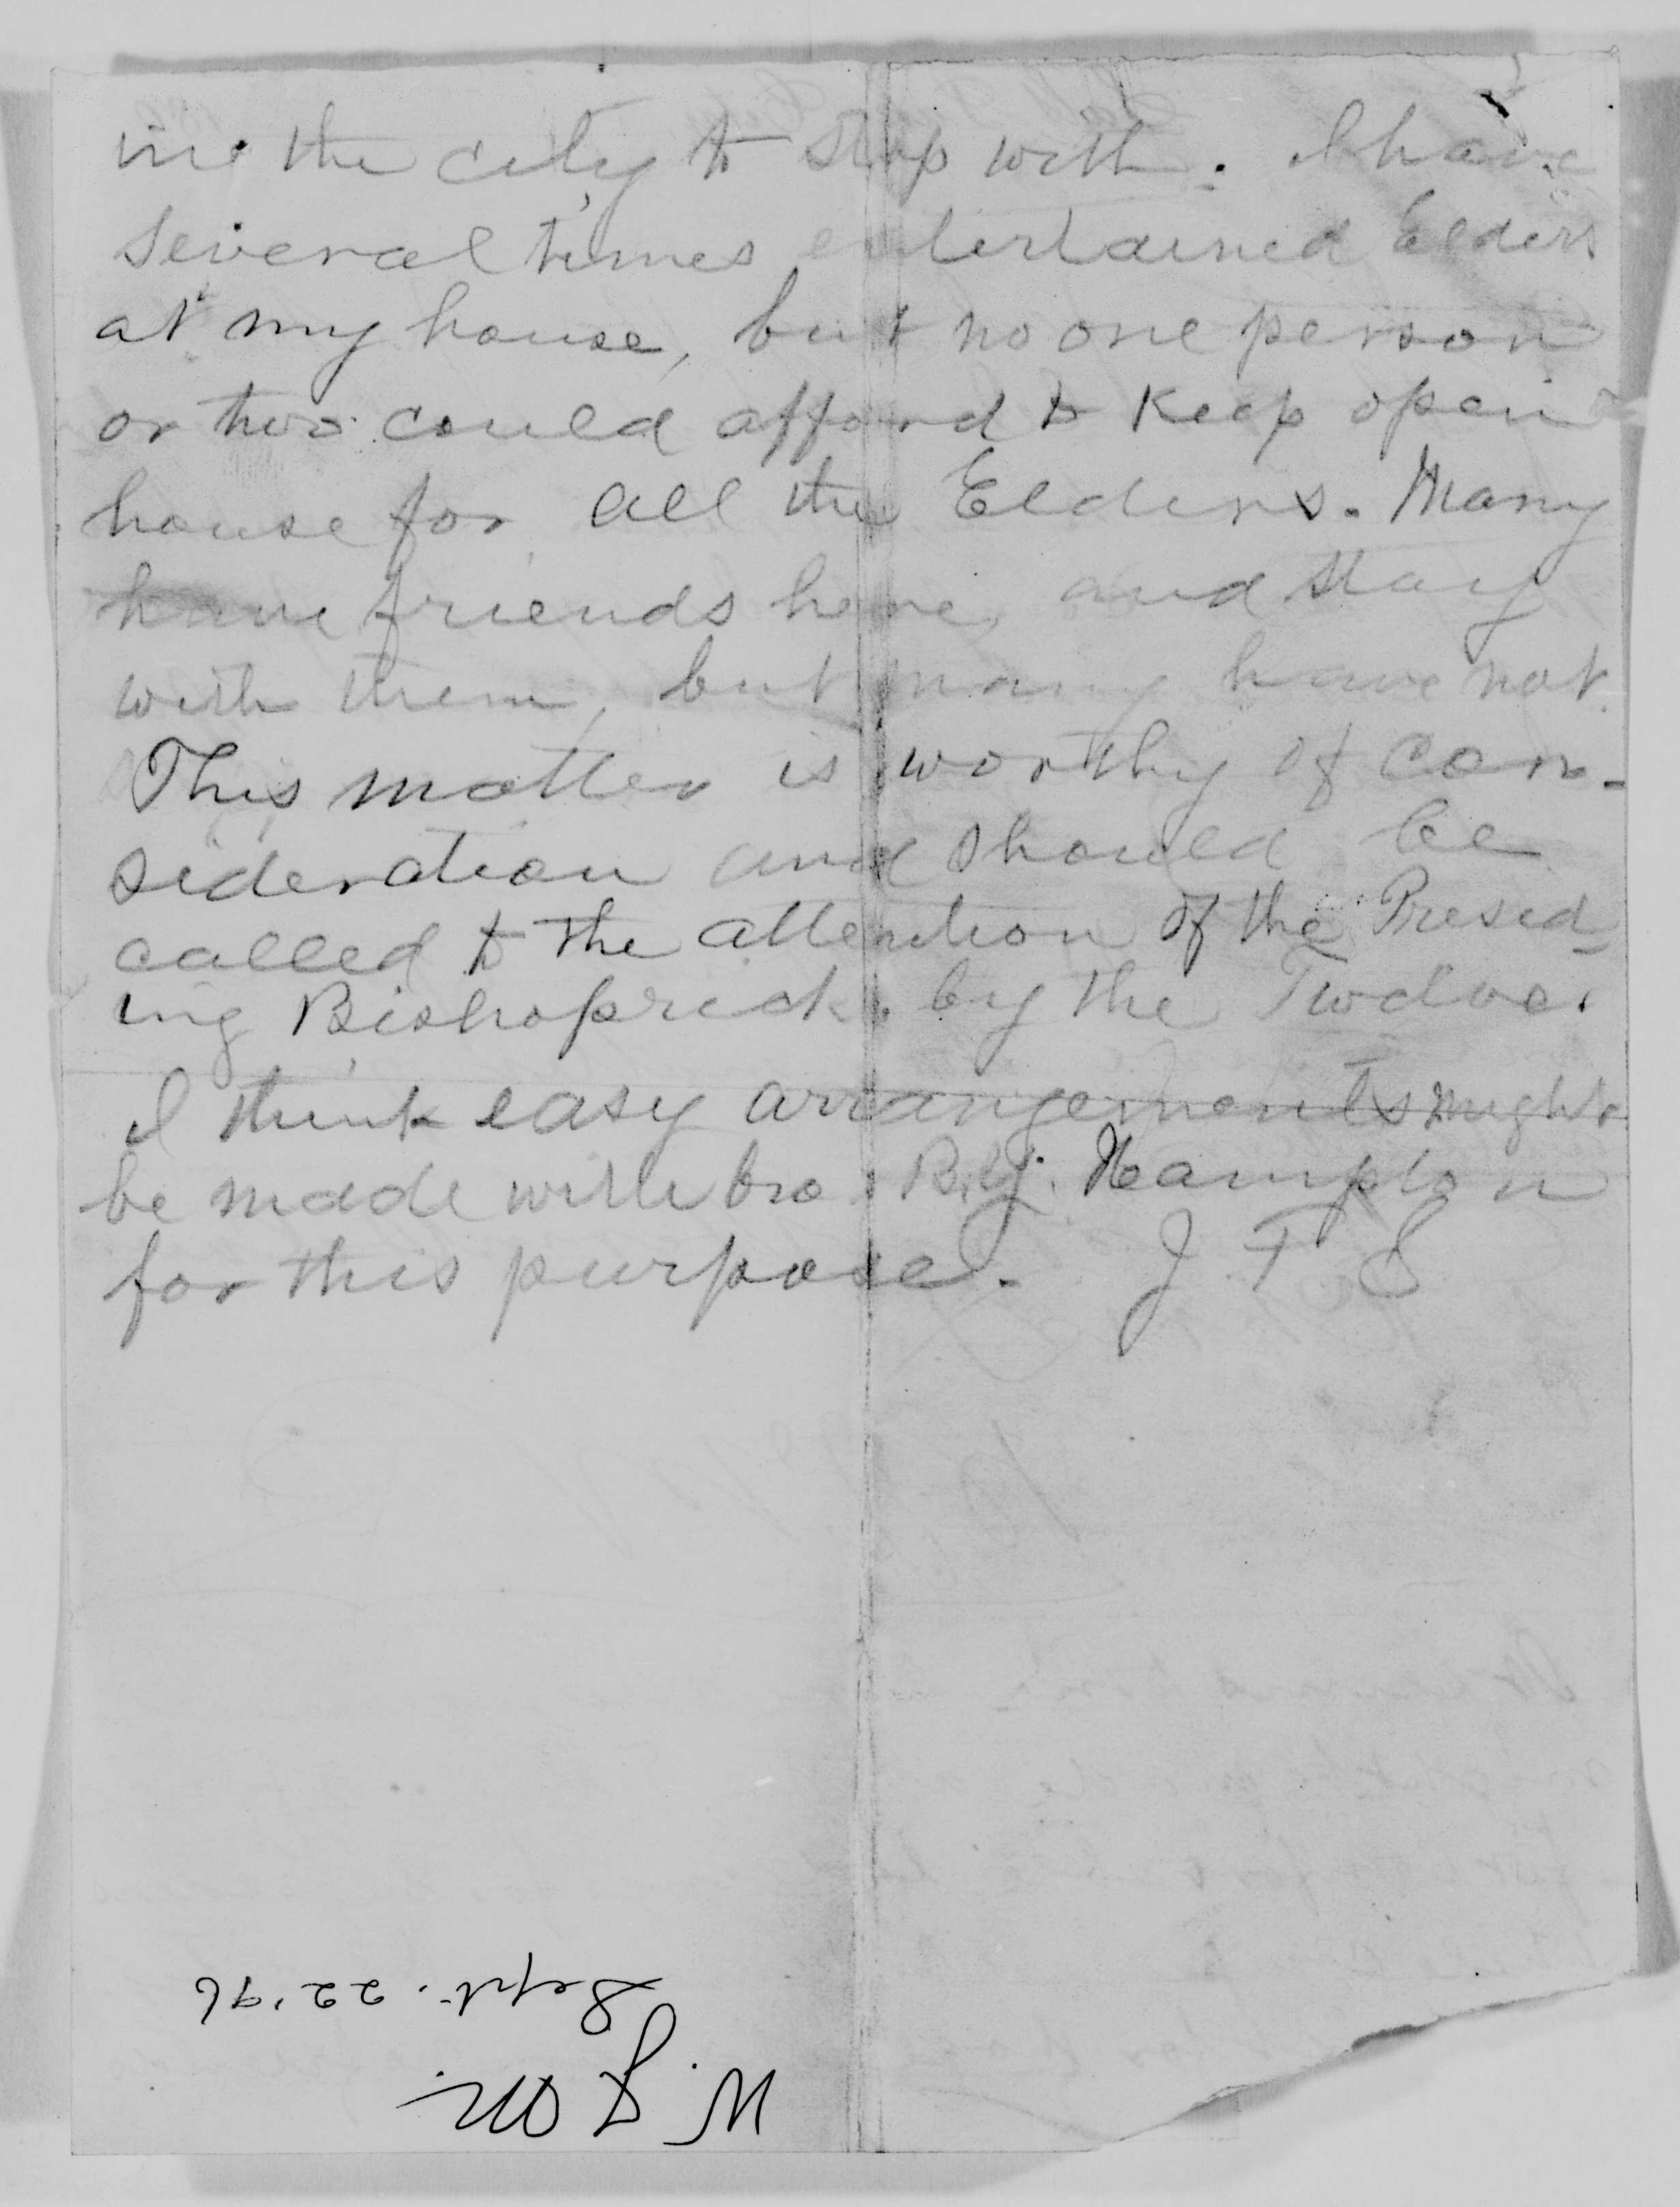 ine the city to stop with. I have
several times entertained Elders
at my house, but no one person
or two could afford to keep open
house for all the Elders. Many
have friends here, and stay
with them, but many have not.
This matter is worthy of con-
sideration and should be
called to the attention of the Presid-
ing Bishoprick by the Twelve.
I think easy arrangements might
be made with bro. B. Y. Hampton
for this purpose. J F S
Sept. 22 '96